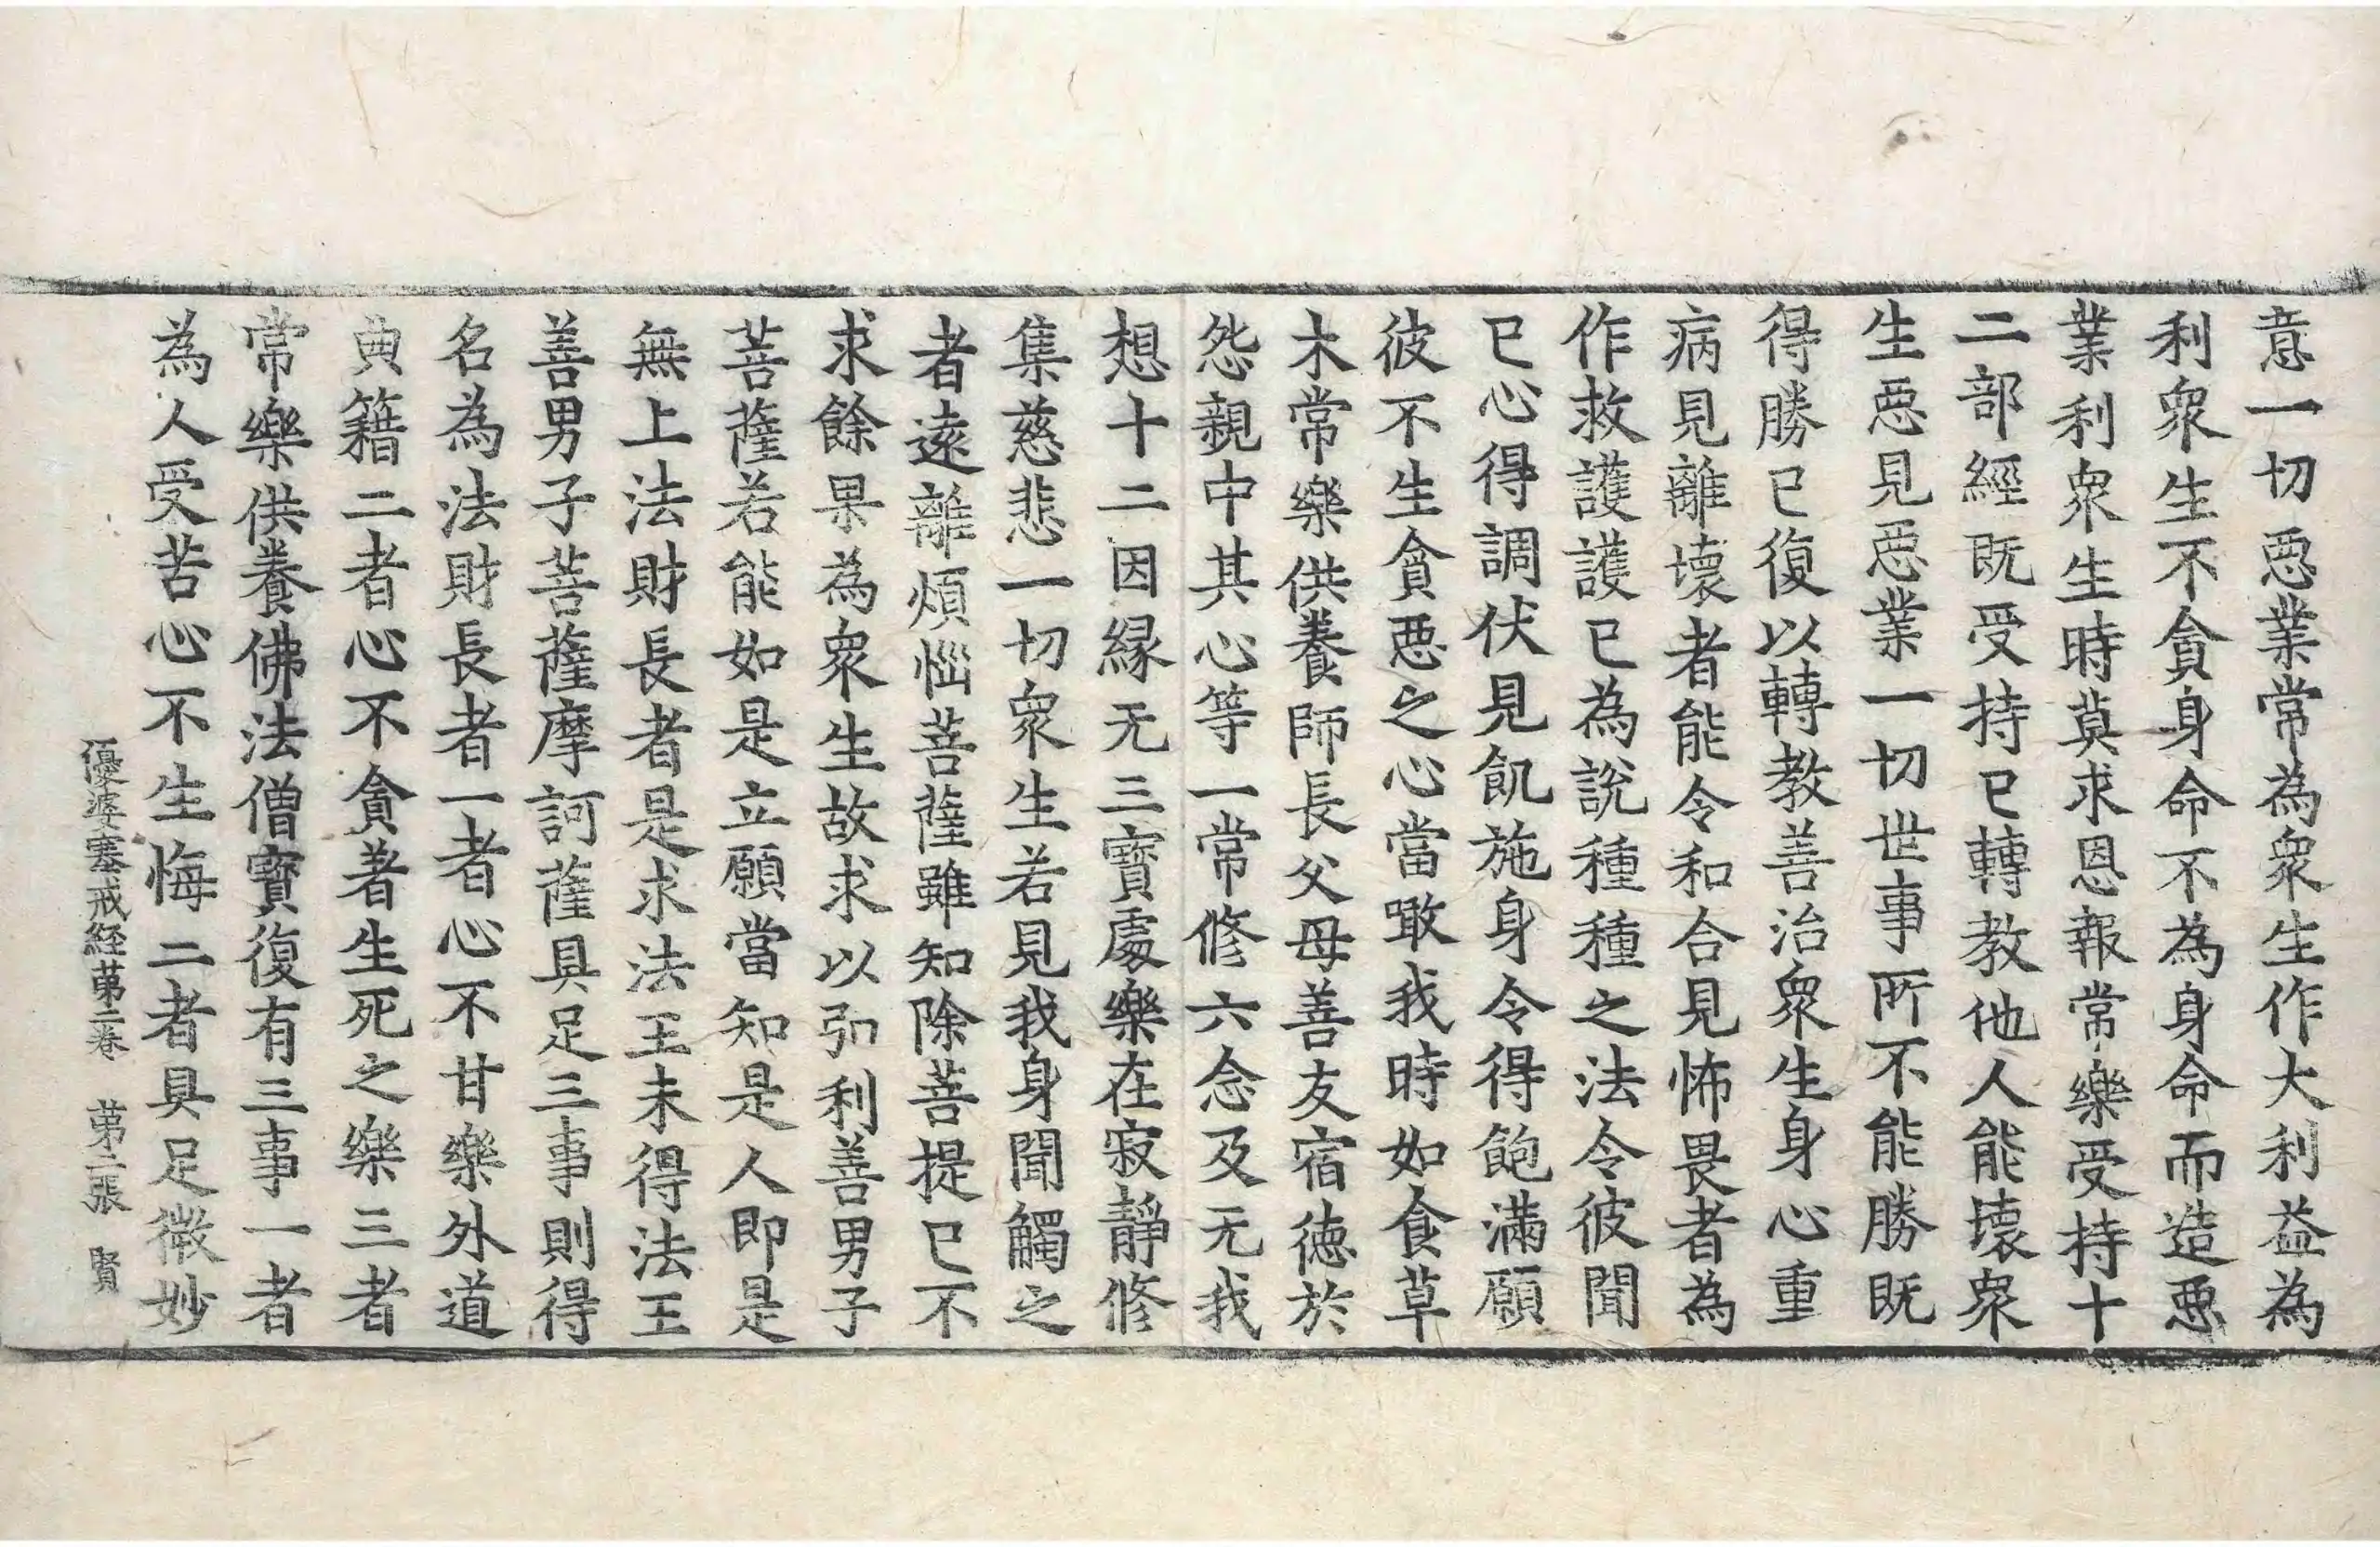 意一切惡業常為衆生作大利益為
利衆生不貪身命不為身命而造惡
業利衆生時莫求恩報常樂受持十
二部經既受持已轉教他人能壞衆
生惡見惡業一切世事所不能勝既
得勝已復以轉教善治衆生身心重
病見離壞者能令和合見怖畏者為
作救護護已為說種種之法令彼聞
已心得調伏見飢施身令得飽滿願
彼不生貪惡之心當噉我時如食草
木常樂供養師長父母善友宿德於
怨親中其心等一常修六念及无我
想十二因緣无三寶處樂在寂靜修
集慈悲一切衆生若見我身聞觸之
者遠離煩惱菩薩雖知除菩提已不
求餘果為衆生故求以引利善男子
菩薩若能如是立願當知是人即是
無上法財長者是求法王未得法王
善男子菩薩摩訶薩具足三事則得
名為法財長者一者心不甘樂外道
典籍二者心不貪著生死之樂三者
常樂供養佛法僧寶復有三事一者
為人受苦心不生悔二者具足微妙
優婆塞戒経第二卷 第二張 賢